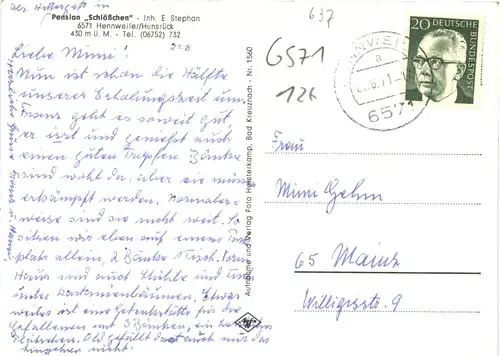 Pension „Schlößchen" - Inh. E. Stephan
6571 Hennweiler/Hunsrück
430 m Ü. M. - Tel. (06752) 732
21.8
Liebe Mimi!
Nun ist schon die Hälfte
unserer Erholungszeit um
Franz geht es soweit gut,
er isst und genießt auch
einen guten Tropfen Bänke
sind wohl da, aber sie müssen
erkämpft werden. Normaler-
weise sind sie nicht weit. So
sitzen wir eben auf einem
platz allein, 2 Bänke 1 Tisch. Vorm
Haus sind auch Stühle und
unter Kastanienbäumen. Etwas
weiter ist eine Gedenkstätte für die
Gefallenen mit 3 Bänken, ein
auch das
nicht.
637
6571
12k
20 DEUTSCHE BUNDESPOST
a
657
Frau
Mimi Gehm
65 Mainz
Willigisstr. 9
Aufnahme und Verlag Foto Hunsterkamp, Bad Kreuznach - Nr. 1560
Agfa